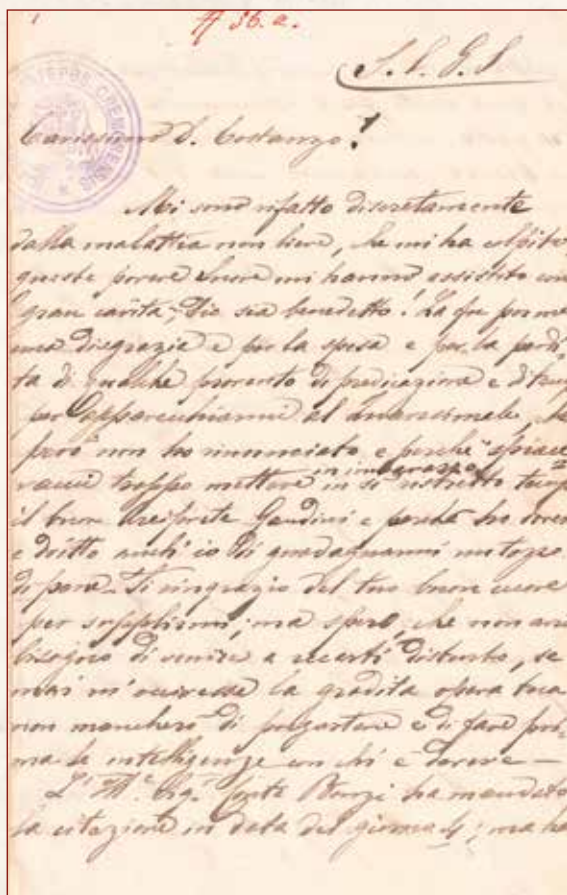 ff 36. a.
S. L. G. S.
Carissimo D. Costanzo!
Mi sono rifatto discretamente
dalla malattia non lieve, che mi ha colpito,
queste povere Suore mi hanno assistito con
gran carità; Dio sia benedetto! La fu per me
una disgrazia e per la spesa e per la perdi-
ta di qualche provento di predicazione e di temp
per apparecchiarmi al Quaresimale, 
però non ho rinunciato e perchè spiace
vami troppo mettere in imbarazzo in sì ristretto temp
il buon Arciprete Gandini e perchè ho dovere
e dritto anch'io di guadagnarmi un tozzo
di pane. Ti ringrazio del tuo buon cuore
per supplirmi; ma spero, che non avrò
bisogno di venire a recarti disturbo, se
mai m'occoresse la gradita opera tua
non mancherò di pregartene e di fare pri-
ma le intelligenze con chi è dovere —
L' Sig. Conte Bonzi ha mandato
la citazione in data del giorno 4; ma ha